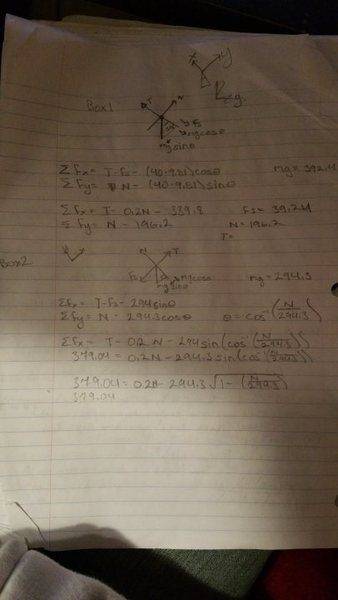 x y
Box 1
T N
Fs
mgcosθ
mgsinθ
ΣFx= T-Fs-(40·9.81)cosθ mg=392.4
ΣFy= N-(40·9.81)sinθ
ΣFx= T-0.2N-339.8 Fs=39.24
ΣFy= N-196.2 N=196.2
T=
Box2
N T
Fs mgcosθ
mgsinθ mg=294.3
ΣFx= T-Fs-294sinθ
ΣFy= N-294.3cosθ θ=cos⁻¹(N/294.3)
ΣFx= T-0.2N-294sin(cos⁻¹(N/294.3))
379.04=0.2N-294.3sin(cos⁻¹(N/294.3))
379.04=0.2N-294.3√1-(N/294.3)
379.04